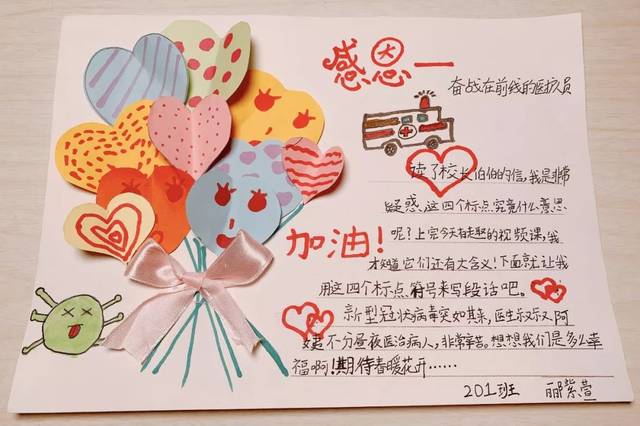 感恩一
奋战在前线的医护员
读了校长伯伯的信,我是非常
疑惑,这四个标点究竟什么意思
呢?上完今天有趣的视频课,我
才知道它们还有大含义!下面就让我
用这四个标点符号来写段话吧。
加油!
新型冠状病毒突如其来,医生叔叔阿
姨不分昼夜医治病人,非常辛苦。想想我们是多么幸
福啊!期待春暖花开……
201班 郦紫萱